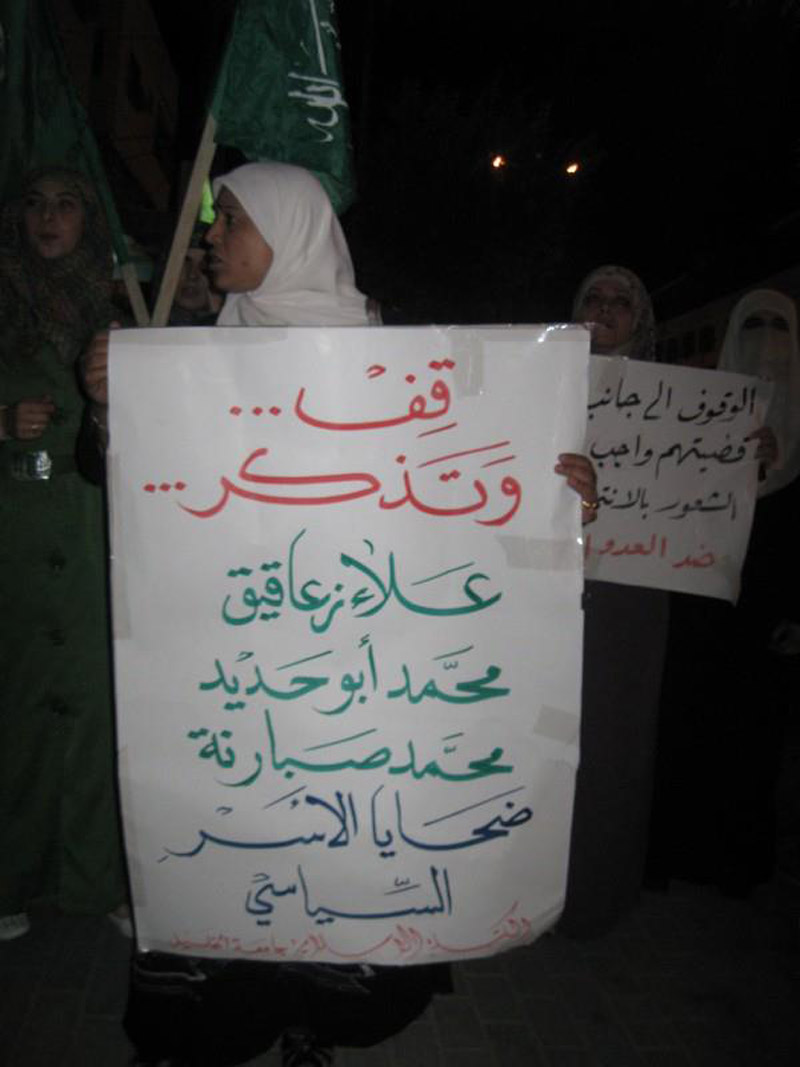 قِف...
وَتَذكر...
علاء زعاقيق
محمَّد أبو حديد
محمَّد صبارنة
ضحايا الأسر
السِّياسي
الكتلة الإسلامية جامعة الخليل
الوقوف الى جانب
قضيتهم واجب
الشعور بالانت
ضد العدو
الله